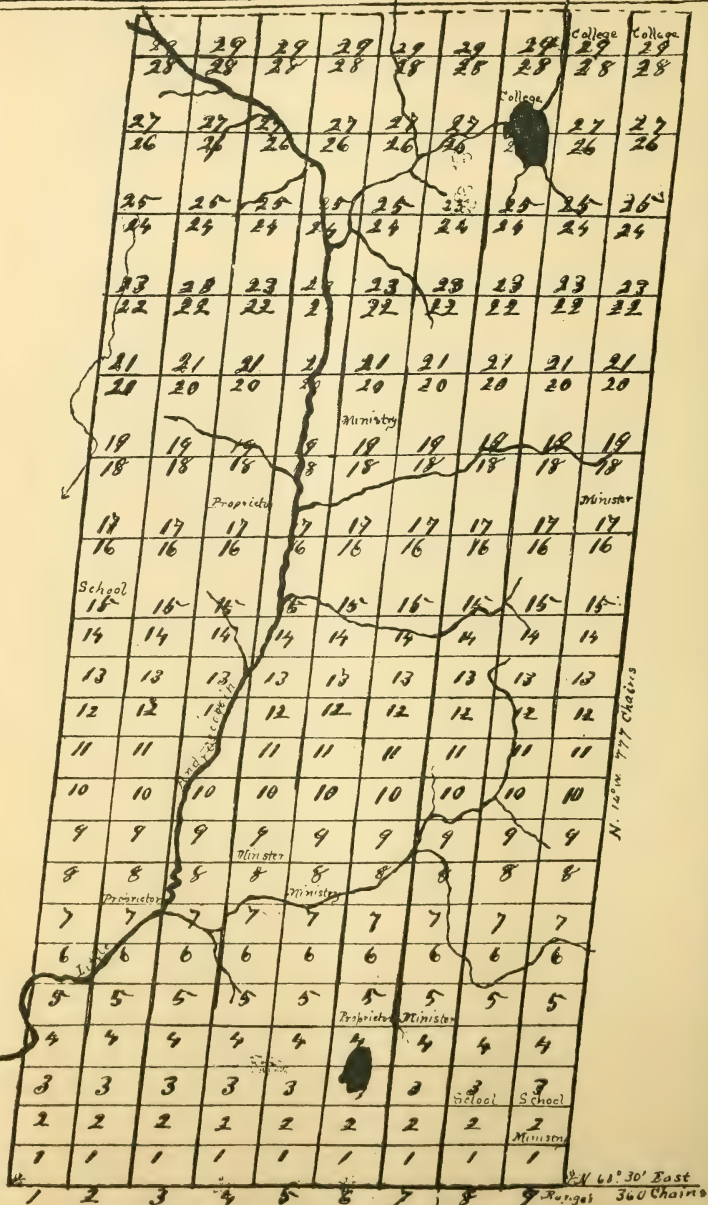 College College
29 29 29 29 29 29 29 29 29
28 28 28 28 28 28 28 28 28
College
27 27 27 27 27 27 27 27
26 26 26 26 26 26 26 26
25 25 25 25 25 25 25
24 24 24 24 24 24 24 24 24
23 23 23 23 23 23 23 23
22 22 22 22 22 22 22
21 21 21 21 21 21 21 21
20 20 20 20 20 20 20 20 20
Ministry
19 19 19 19 19 19 19 19 19
18 18 18 18 18 18 18 18 18
Proprietor Minister
17 17 17 17 17 17 17 17 17
16 16 16 16 16 16 16 16 16
School
15 15 15 15 15 15 15 15 15
14 14 14 14 14 14 14 14 14
13 13 13 13 13 13 13 13
12 12 12 12 12 12 12 12
11 11 11 11 11 11 11 11
10 10 10 10 10 10 10 10 10
9 9 9 9 9 9 9 9 9
Minister
8 8 8 8 8 8 8 8 8
Proprietor Ministry
7 7 7 7 7 7 7 7 7
6 6 6 6 6 6 6 6 6
5 5 5 5 5 5 5 5 5
Proprietor Minister
4 4 4 4 4 4 4 4 4
3 3 3 3 3 3 3 3
School School
2 2 2 2 2 2 2 2 2
Ministry
1 1 1 1 1 1 1 1 1
1 2 3 4 5 6 7 8 9 Ranges
Little Androscoggin
N. 12° W. 777 Chains
360 Chains